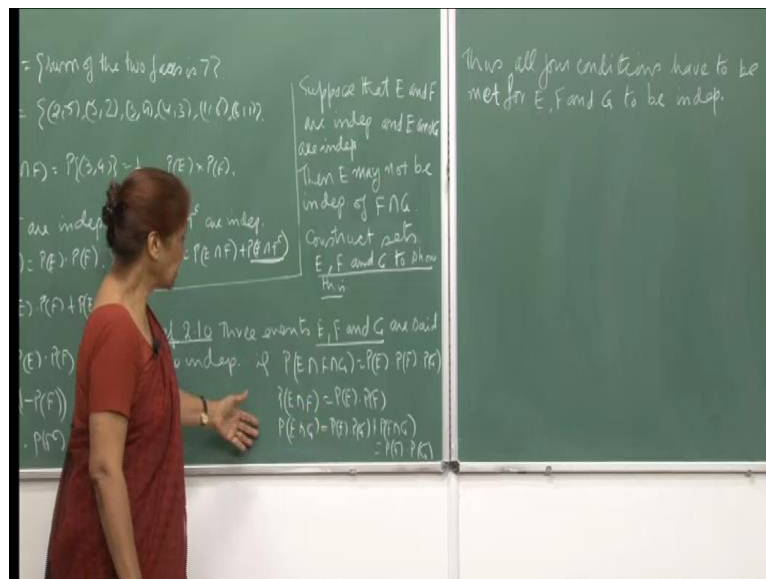 = {sum of the two faces is 7}.
= {(2,5),(5,2),(3,4),(4,3),(1,6),(6,1)}.
∩F) = P{(3,4)} = P(E) × P(F).
are indep are indep.
) = P(E) · P(F) = P(E∩F) + P(E∩Fᶜ)
) · P(F) + P(E
P(E) · P(F)
(-P(F))
Suppose that E and F
are indep and E and G
are indep
Then E may not be
indep of F∩G.
Construct sets
E, F and G to show
this
2.10 Three events E, F and G are said
to indep. if P(E∩F∩G) = P(E) · P(F) · P(G)
P(E∩F) = P(E) · P(F)
P(E∩G) = P(E) · P(G), P(F∩G)
= P(F) · P(G)
Thus all four conditions have to be
met for E, F and G to be indep.